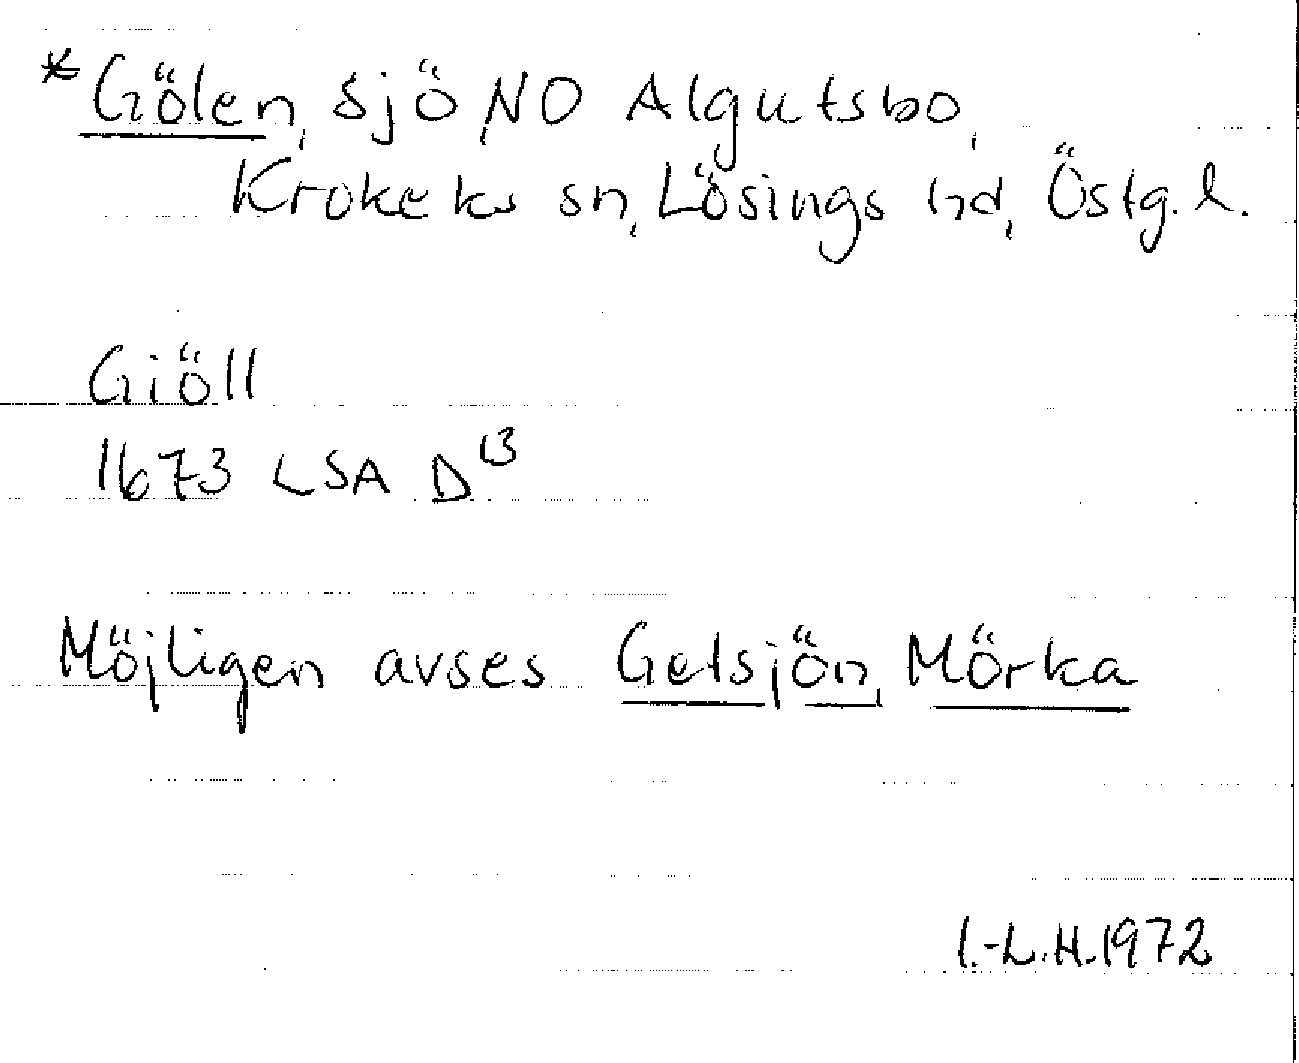 *Gölen, sjö NO Algutsbo,
Krokeks sn, Lösings hd, Östg. l.
Giöll
1673 LSA D¹³
Möjligen avses Getsjön, Mörka
I.-L.H. 1972